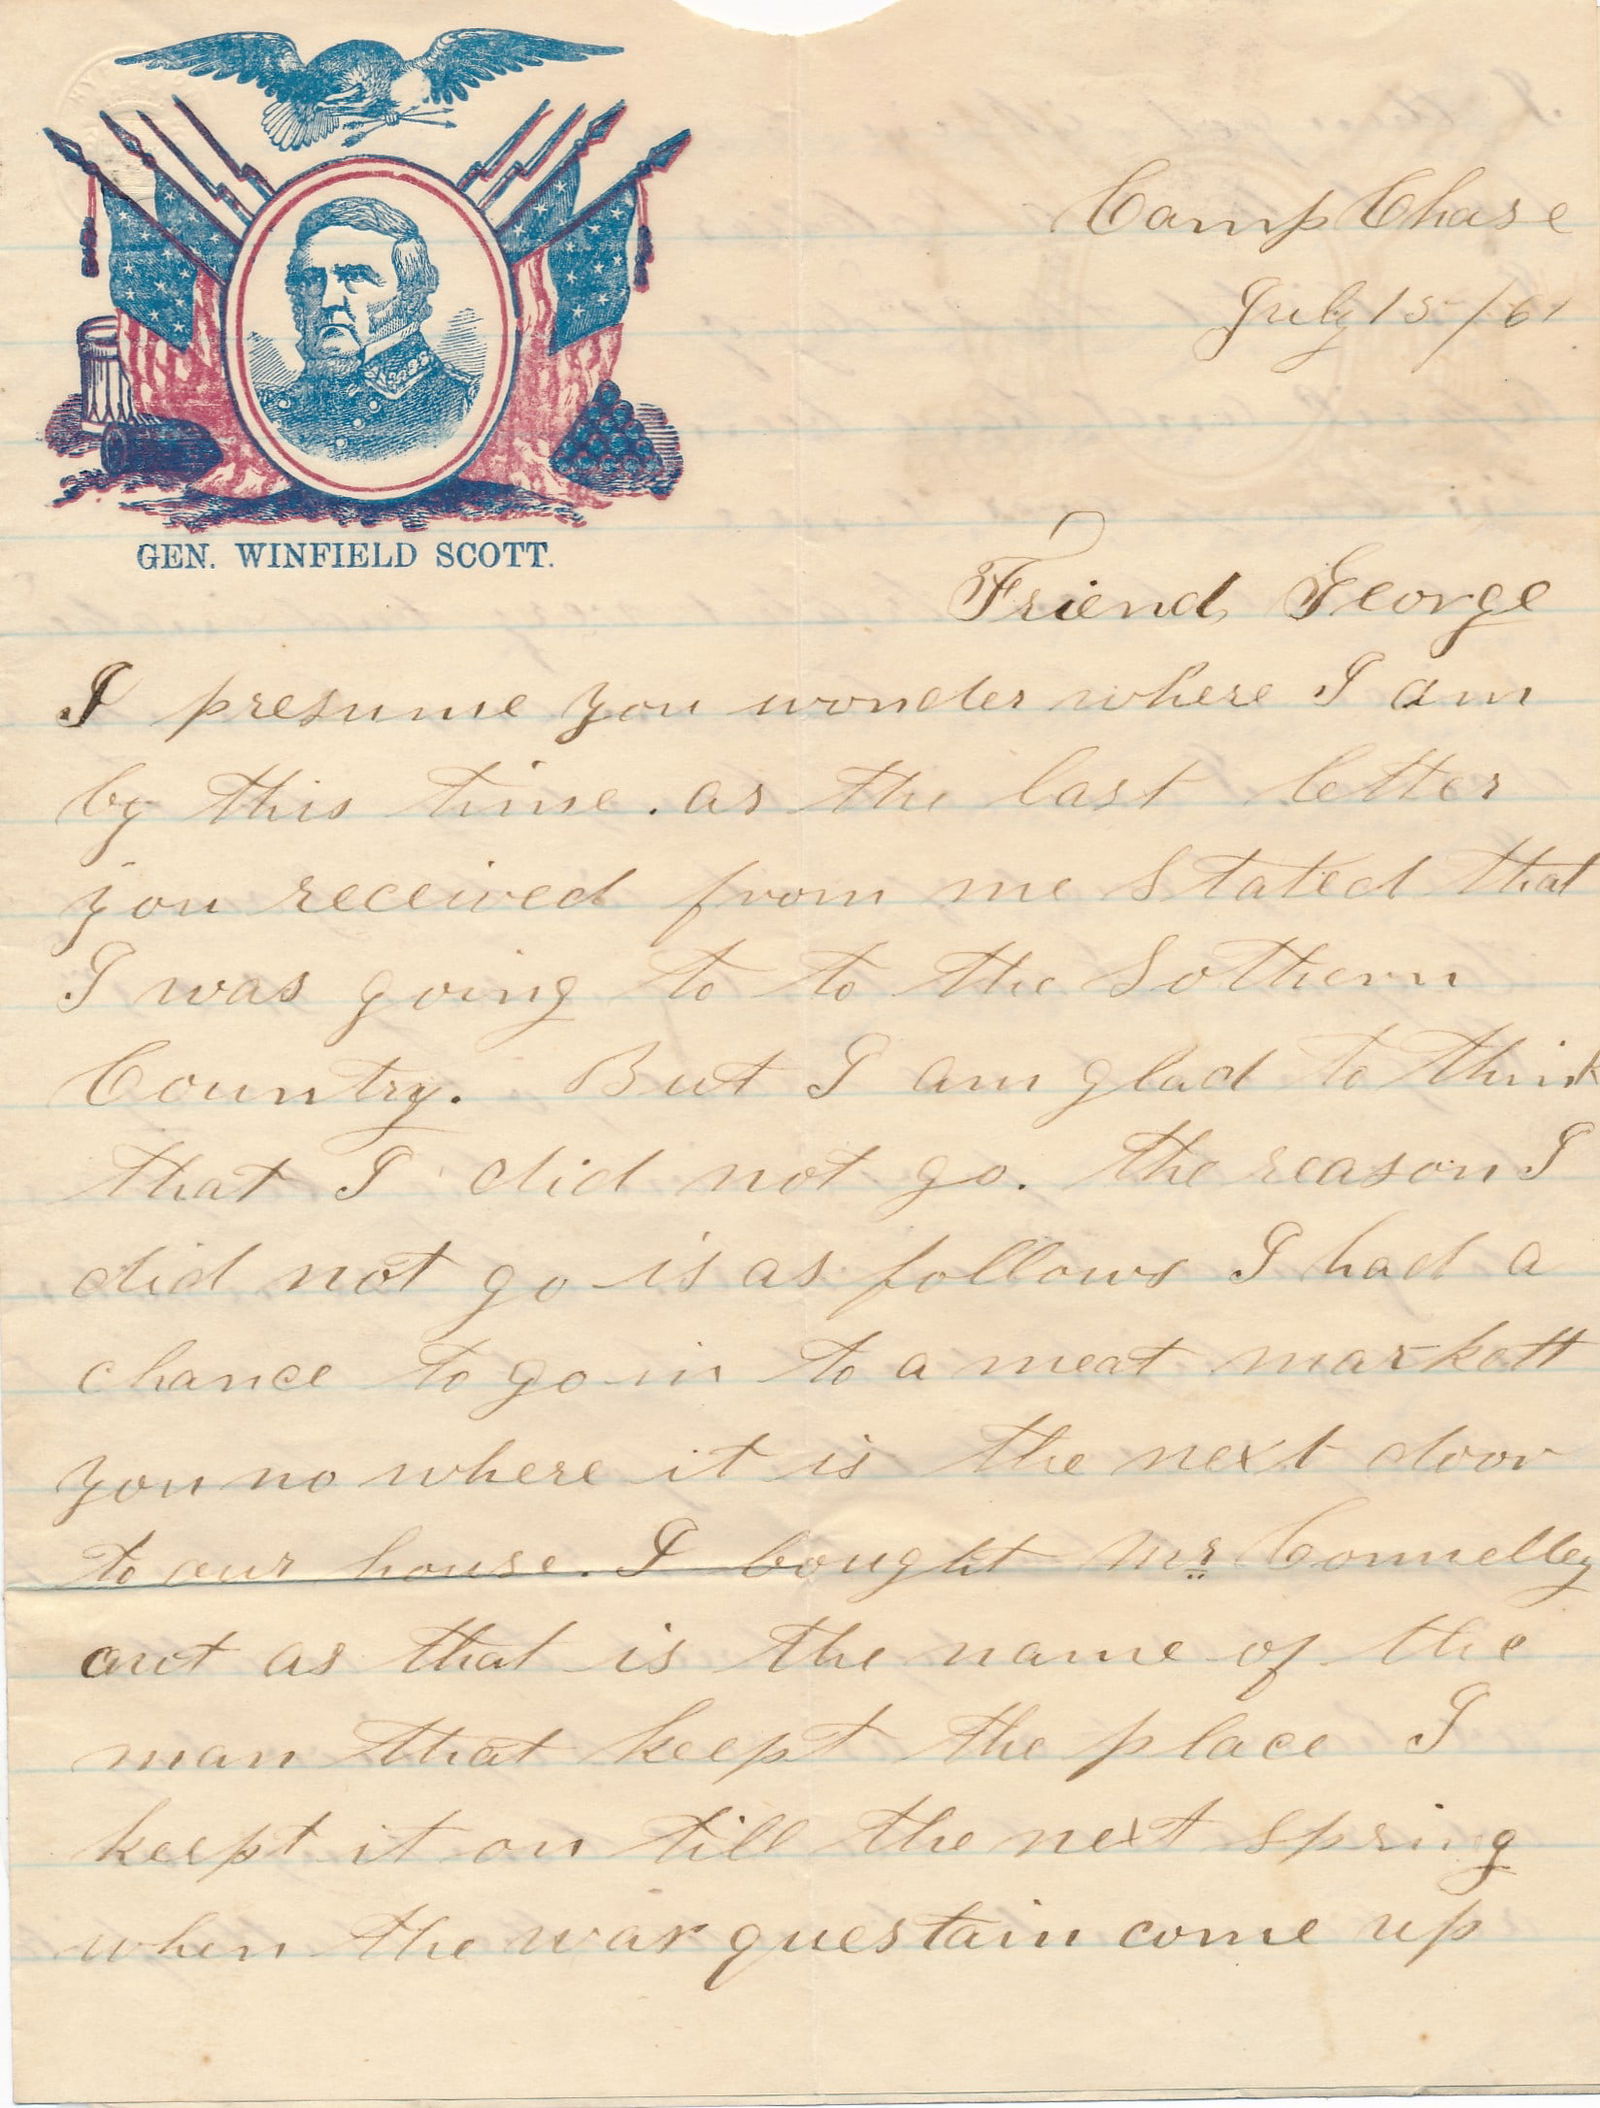 GEN. WINFIELD SCOTT.
Camp Chase
July 15/61
Friend George
I presume you wonder where I am
by this time. as the last letter
you received from me stated that
I was going to to the Sothern
Country. But I am glad to think
that I did not go. the reason I
did not go is as follows I had a
chance to go in to a meat markett
you no where it is the next door
to our house. I bought Mr Connelley
out as that is the name of the
man that keept the place I
keept it on till the next spring
when the war questain come up